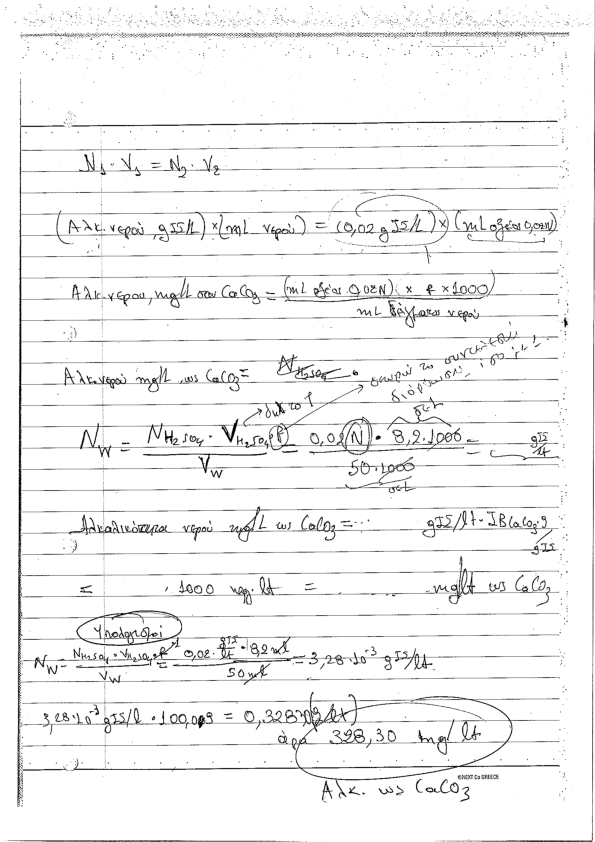 N₁ · V₁ = N₂ · V₂
(Αλκ. νερού, gIS/L) × (mL νερού) = (0,02 gIS/L) × (mL οξέος 0,02N)
Αλκ. νερού, mg/L σαν CaCO₃ = (mL οξέος 0,02N) × f × 1000
mL δείγματος νερού
Αλκ. νερού mg/L ως CaCO₃ =
θεωρώ το συντελεστή
διόρθωσης ίσο με 1
N_W = N_H₂SO₄ · V_H₂SO₄ · f / V_W = 0,02 (N) · 8,2 · 1000 / 50 · 1000 = gIS/lt
Αλκαλικότητα νερού mg/L ως CaCO₃ = ... gIS/lt · IB CaCO₃ g/gIS
= · 1000 mg · lt = ... mg/lt ως CaCO₃
Υπολογισμοί
N_W = N_H₂SO₄ · V_H₂SO₄ · f / V_W = 0,02 · gIS/lt · 8,2 ml / 50 ml = 3,28 · 10⁻³ gIS/lt
3,28 · 10⁻³ gIS/l · 100,09 = 0,3283 (g/lt)
άρα 328,30 mg/lt
©NEXT Co GREECE
Αλκ. ως CaCO₃